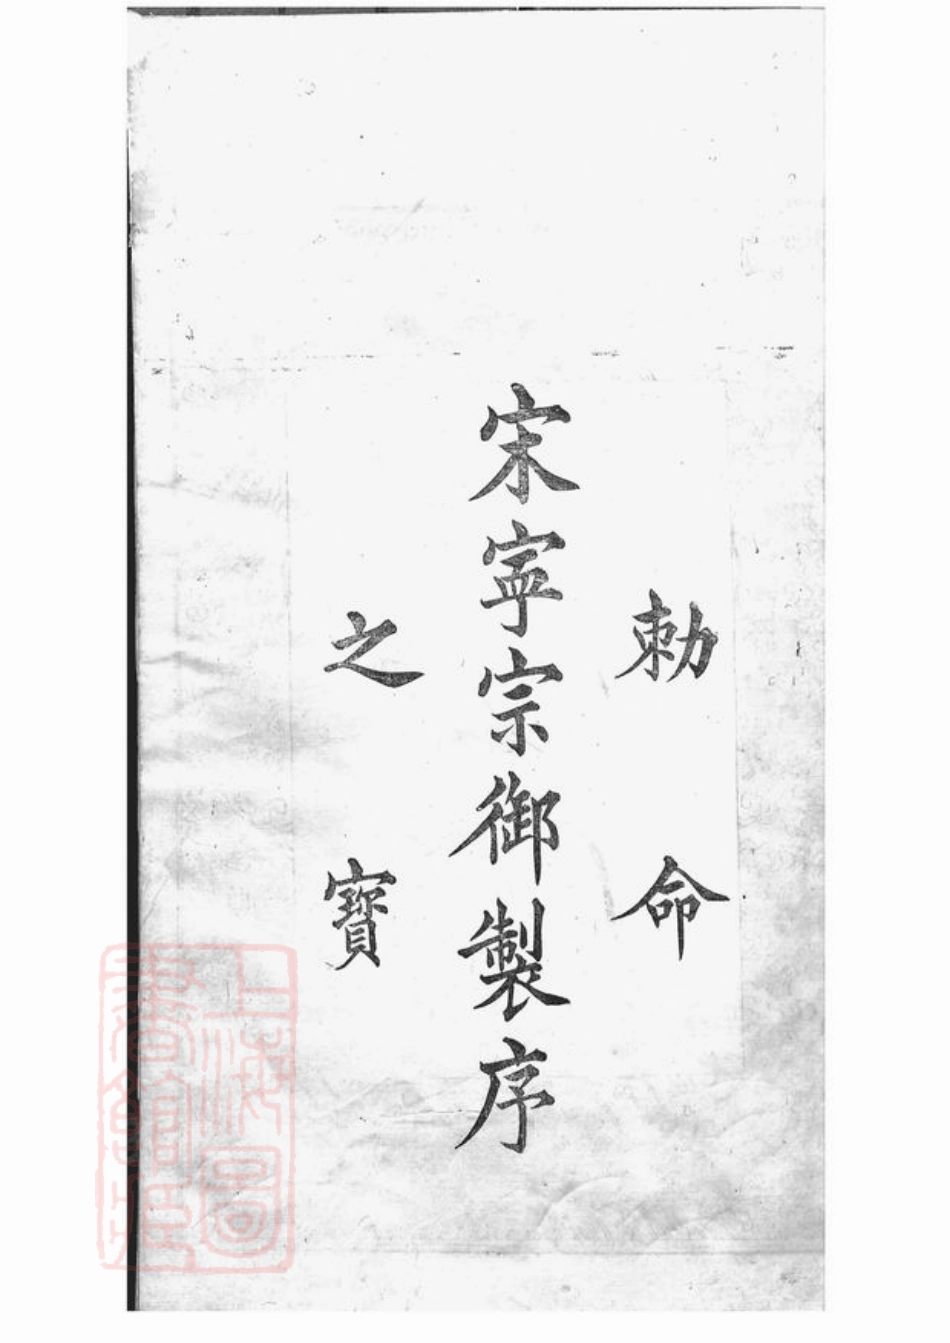 勅命
宋寕宗御製序
之寳
上海圖書館藏